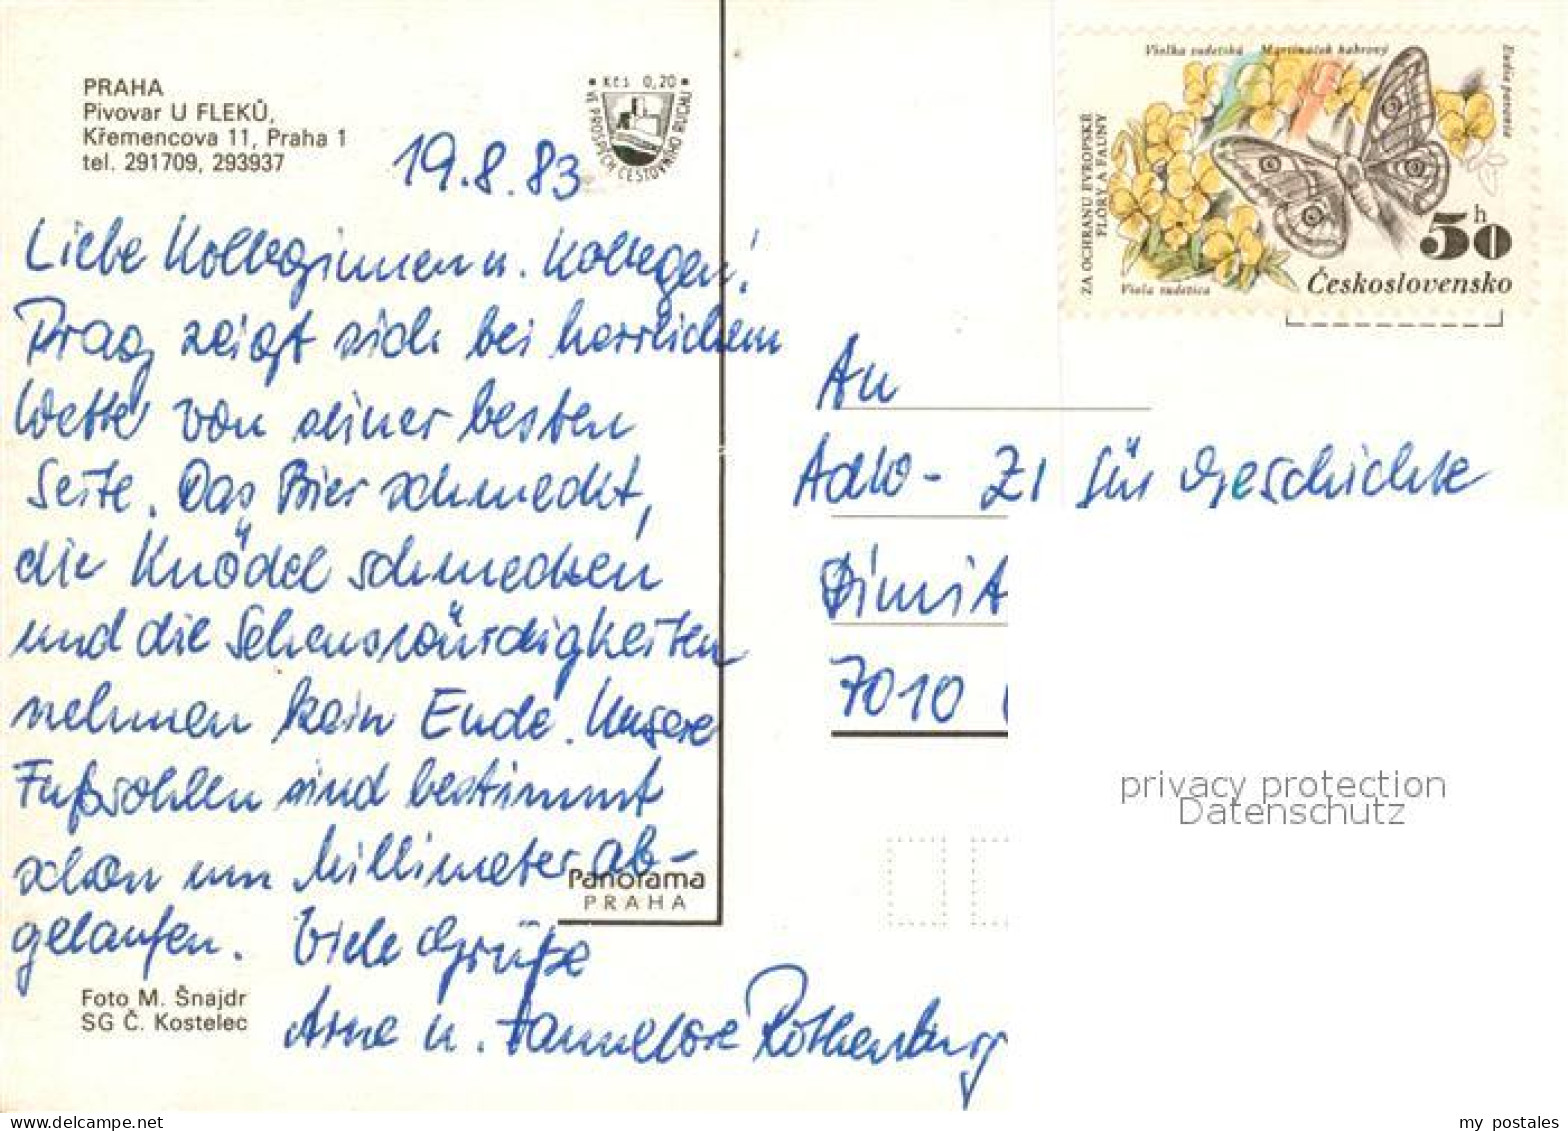 PRAHA
Pivovar U FLEKŮ,
Křemencova 11, Praha 1
tel. 291709, 293937
Kčs 0,20
VE PROSPĚCH CESTOVNÍHO RUCHU
19.8.83
Liebe Kolleginnen u. Kollegen!
Prag zeigt sich bei herrlichem
Wetter von seiner besten
Seite. Das Bier schmeckt,
die Knödel schmecken
und die Sehenswürdigkeiten
nehmen kein Ende. Unsere
Fußsohlen sind bestimmt
schon um Millimeter ab-
gelaufen. Viele Grüße
Arne u. Hannelore Rothenburg
Panorama
PRAHA
Foto M. Šnajdr
SG Č. Kostelec
Violka sudetská Martináček habrový
Eudia pavonia
ZA OCHRANU EVROPSKÉ
FLÓRY A FAUNY
Viola sudetica
50 h
Československo
An
AdW - ZI für Geschichte
Dimit
7010
privacy protection
Datenschutz
my postales